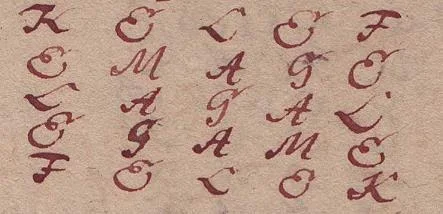 K E L E F
E M A G E
L A G A L
E G A M E
F E L E K